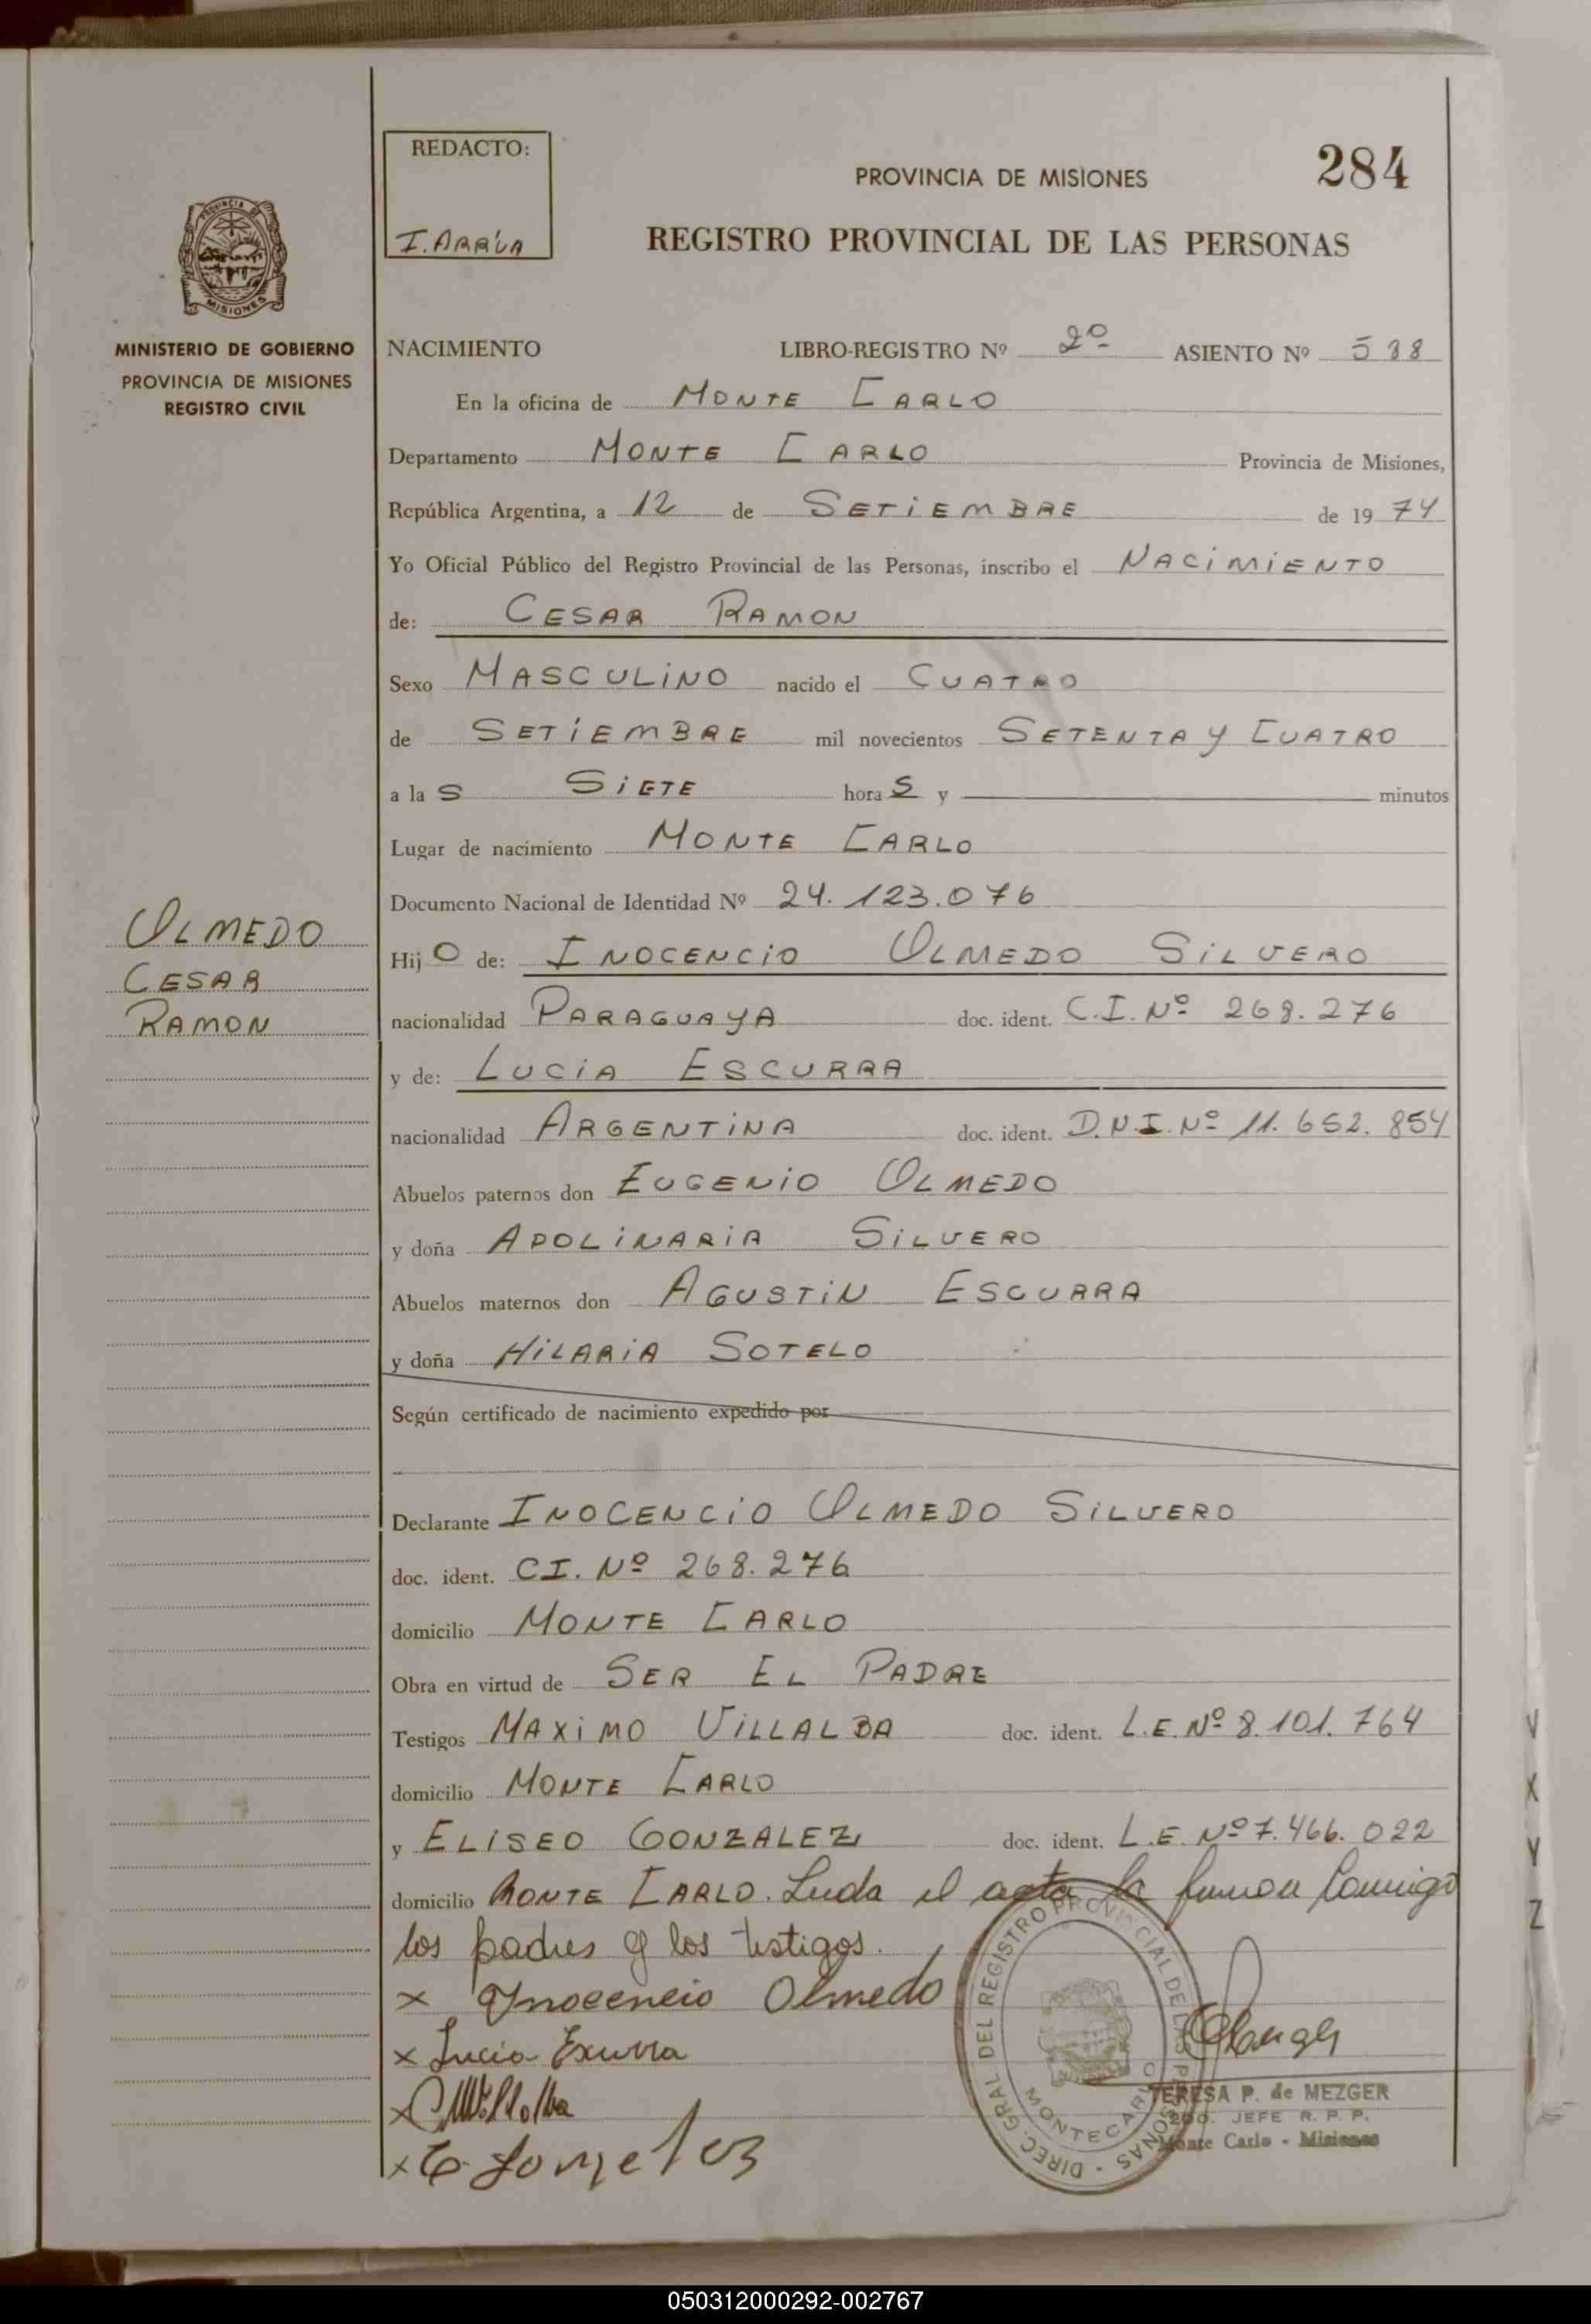 REDACTO:
I. ARRÚA
PROVINCIA DE MISIONES
284
REGISTRO PROVINCIAL DE LAS PERSONAS
PROVINCIA DE
MISIONES
MINISTERIO DE GOBIERNO
PROVINCIA DE MISIONES
REGISTRO CIVIL
NACIMIENTO LIBRO-REGISTRO Nº 2º ASIENTO Nº 538
En la oficina de MONTE CARLO
Departamento MONTE CARLO Provincia de Misiones,
República Argentina, a 12 de SETIEMBRE de 1974
Yo Oficial Público del Registro Provincial de las Personas, inscribo el NACIMIENTO
de: CESAR RAMON
Sexo MASCULINO nacido el CUATRO
de SETIEMBRE mil novecientos SETENTA Y CUATRO
a la S SIETE hora S y minutos
Lugar de nacimiento MONTE CARLO
Documento Nacional de Identidad Nº 24.123.076
OLMEDO
CESAR
RAMON
Hij O de: INOCENCIO OLMEDO SILVERO
nacionalidad PARAGUAYA doc. ident. C.I. Nº 268.276
y de: LUCIA ESCURRA
nacionalidad ARGENTINA doc. ident. D.N.I. Nº 11.652.854
Abuelos paternos don EUGENIO OLMEDO
y doña APOLINARIA SILVERO
Abuelos maternos don AGUSTIN ESCURRA
y doña HILARIA SOTELO
Según certificado de nacimiento expedido por
Declarante INOCENCIO OLMEDO SILVERO
doc. ident. CI. Nº 268.276
domicilio MONTE CARLO
Obra en virtud de SER EL PADRE
Testigos MAXIMO VILLALBA doc. ident. L.E. Nº 8.101.764
domicilio MONTE CARLO
y ELISEO GONZALEZ doc. ident. L.E. Nº 7.466.022
domicilio MONTE CARLO. Leida el acta la firman conmigo
los padres y los testigos.
x Inocencio Olmedo
x Lucia Escurra
x Villalba
x E. Gonzalez
DIREC. GRAL DEL REGISTRO PROVINCIAL DE LAS PERSONAS
MONTECARLO
TERESA P. de MEZGER
2do. JEFE R. P. P.
Monte Carlo - Misiones
V
X
Y
Z
050312000292-002767